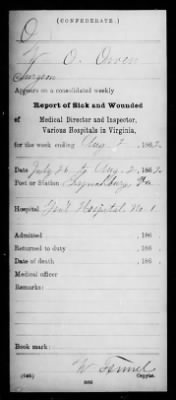 (CONFEDERATE.)
O
W. O. Owen
Surgeon
Appears on a consolidated weekly
Report of Sick and Wounded
of Medical Director and Inspector,
Various Hospitals in Virginia,
for the week ending Aug 2, 1862.
Date July 26 to Aug. 2, 1862.
Post or Station Lynchburg, Va
Hospital Gen'l Hospital No. 1
Admitted , 186 .
Returned to duty , 186 .
Date of death , 186 .
Medical officer
Remarks:
Book mark:
W.
Copyist.